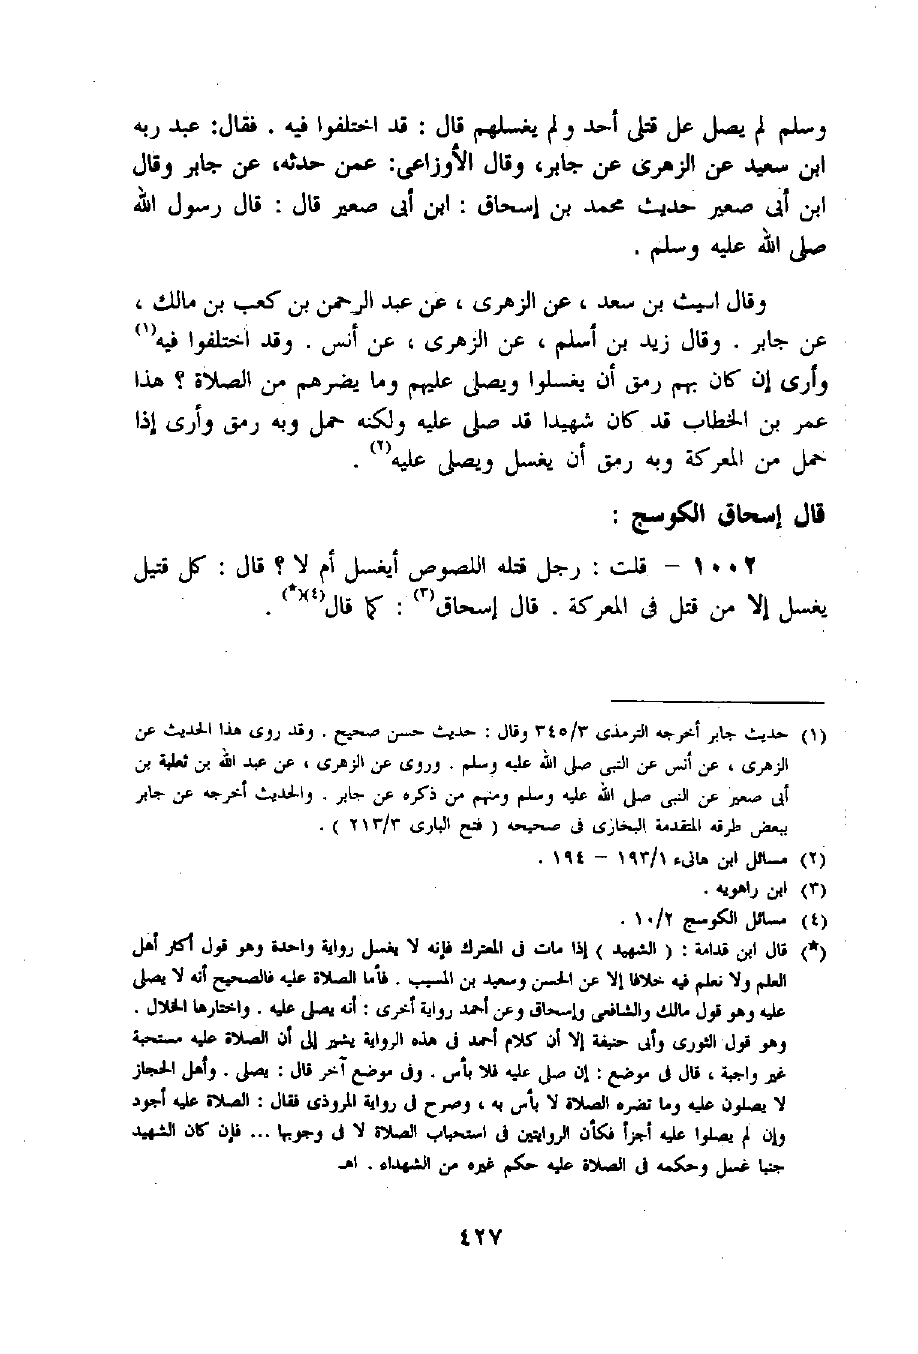 وسلم لم يصل على قتلى أحد ولم يغسلهم قال : قد اختلفوا فيه . فقال: عبد ربه
ابن سعيد عن الزهرى عن جابر، وقال الأوزاعى: عمن حدثه، عن جابر وقال
ابن أبى صعير حديث محمد بن إسحاق : ابن أبى صعير قال : قال رسول الله
صلى الله عليه وسلم .
وقال الليث بن سعد ، عن الزهرى ، عن عبد الرحمن بن كعب بن مالك ،
عن جابر . وقال زيد بن أسلم ، عن الزهرى ، عن أنس . وقد اختلفوا فيه(١)
وأرى إن كان بهم رمق أن يغسلوا ويصلى عليهم وما يضرهم من الصلاة ؟ هذا
عمر بن الخطاب قد كان شهيدا قد صلى عليه ولكنه حمل وبه رمق وأرى إذا
حمل من المعركة وبه رمق أن يغسل ويصلى عليه(٢) .
قال إسحاق الكوسج :
١٠٠٢ - قلت : رجل قتله اللصوص أيغسل أم لا ؟ قال : كل قتيل
يغسل إلا من قتل فى المعركة . قال إسحاق(٣) : كما قال(٤)(*) .
(١) حديث جابر أخرجه الترمذى ٣٤٥/٣ وقال : حديث حسن صحيح . وقد روى هذا الحديث عن
الزهرى ، عن أنس عن النبى صلى الله عليه وسلم . وروى عن الزهرى ، عن عبد الله بن ثعلبة بن
أبى صعير عن النبى صلى الله عليه وسلم ومنهم من ذكره عن جابر . والحديث أخرجه عن جابر
ببعض طرقه المتقدمة البخارى فى صحيحه ( فتح البارى ٢١٣/٣ ) .
(٢) مسائل ابن هانىء ١٩٣/١ - ١٩٤ .
(٣) ابن راهويه .
(٤) مسائل الكوسج ١٠/٢ .
(*) قال ابن قدامة : ( الشهيد ) إذا مات فى المعترك فإنه لا يغسل رواية واحدة وهو قول أكثر أهل
العلم ولا نعلم فيه خلافا إلا عن الحسن وسعيد بن المسيب . فأما الصلاة عليه فالصحيح أنه لا يصلى
عليه وهو قول مالك والشافعى وإسحاق وعن أحمد رواية أخرى : أنه يصلى عليه . واختارها الخلال .
وهو قول الثورى وأبى حنيفة إلا أن كلام أحمد فى هذه الرواية يشير إلى أن الصلاة عليه مستحبة
غير واجبة ، قال فى موضع : إن صلى عليه فلا بأس . وفى موضع آخر قال : يصلى . وأهل الحجاز
لا يصلون عليه وما تضره الصلاة لا بأس به ، وصرح فى رواية المروذى فقال : الصلاة عليه أجود
وإن لم يصلوا عليه أجزأ فكأن الروايتين فى استحباب الصلاة لا فى وجوبها ... فإن كان الشهيد
جنبا غسل وحكمه فى الصلاة عليه حكم غيره من الشهداء . اهـ
٤٢٧